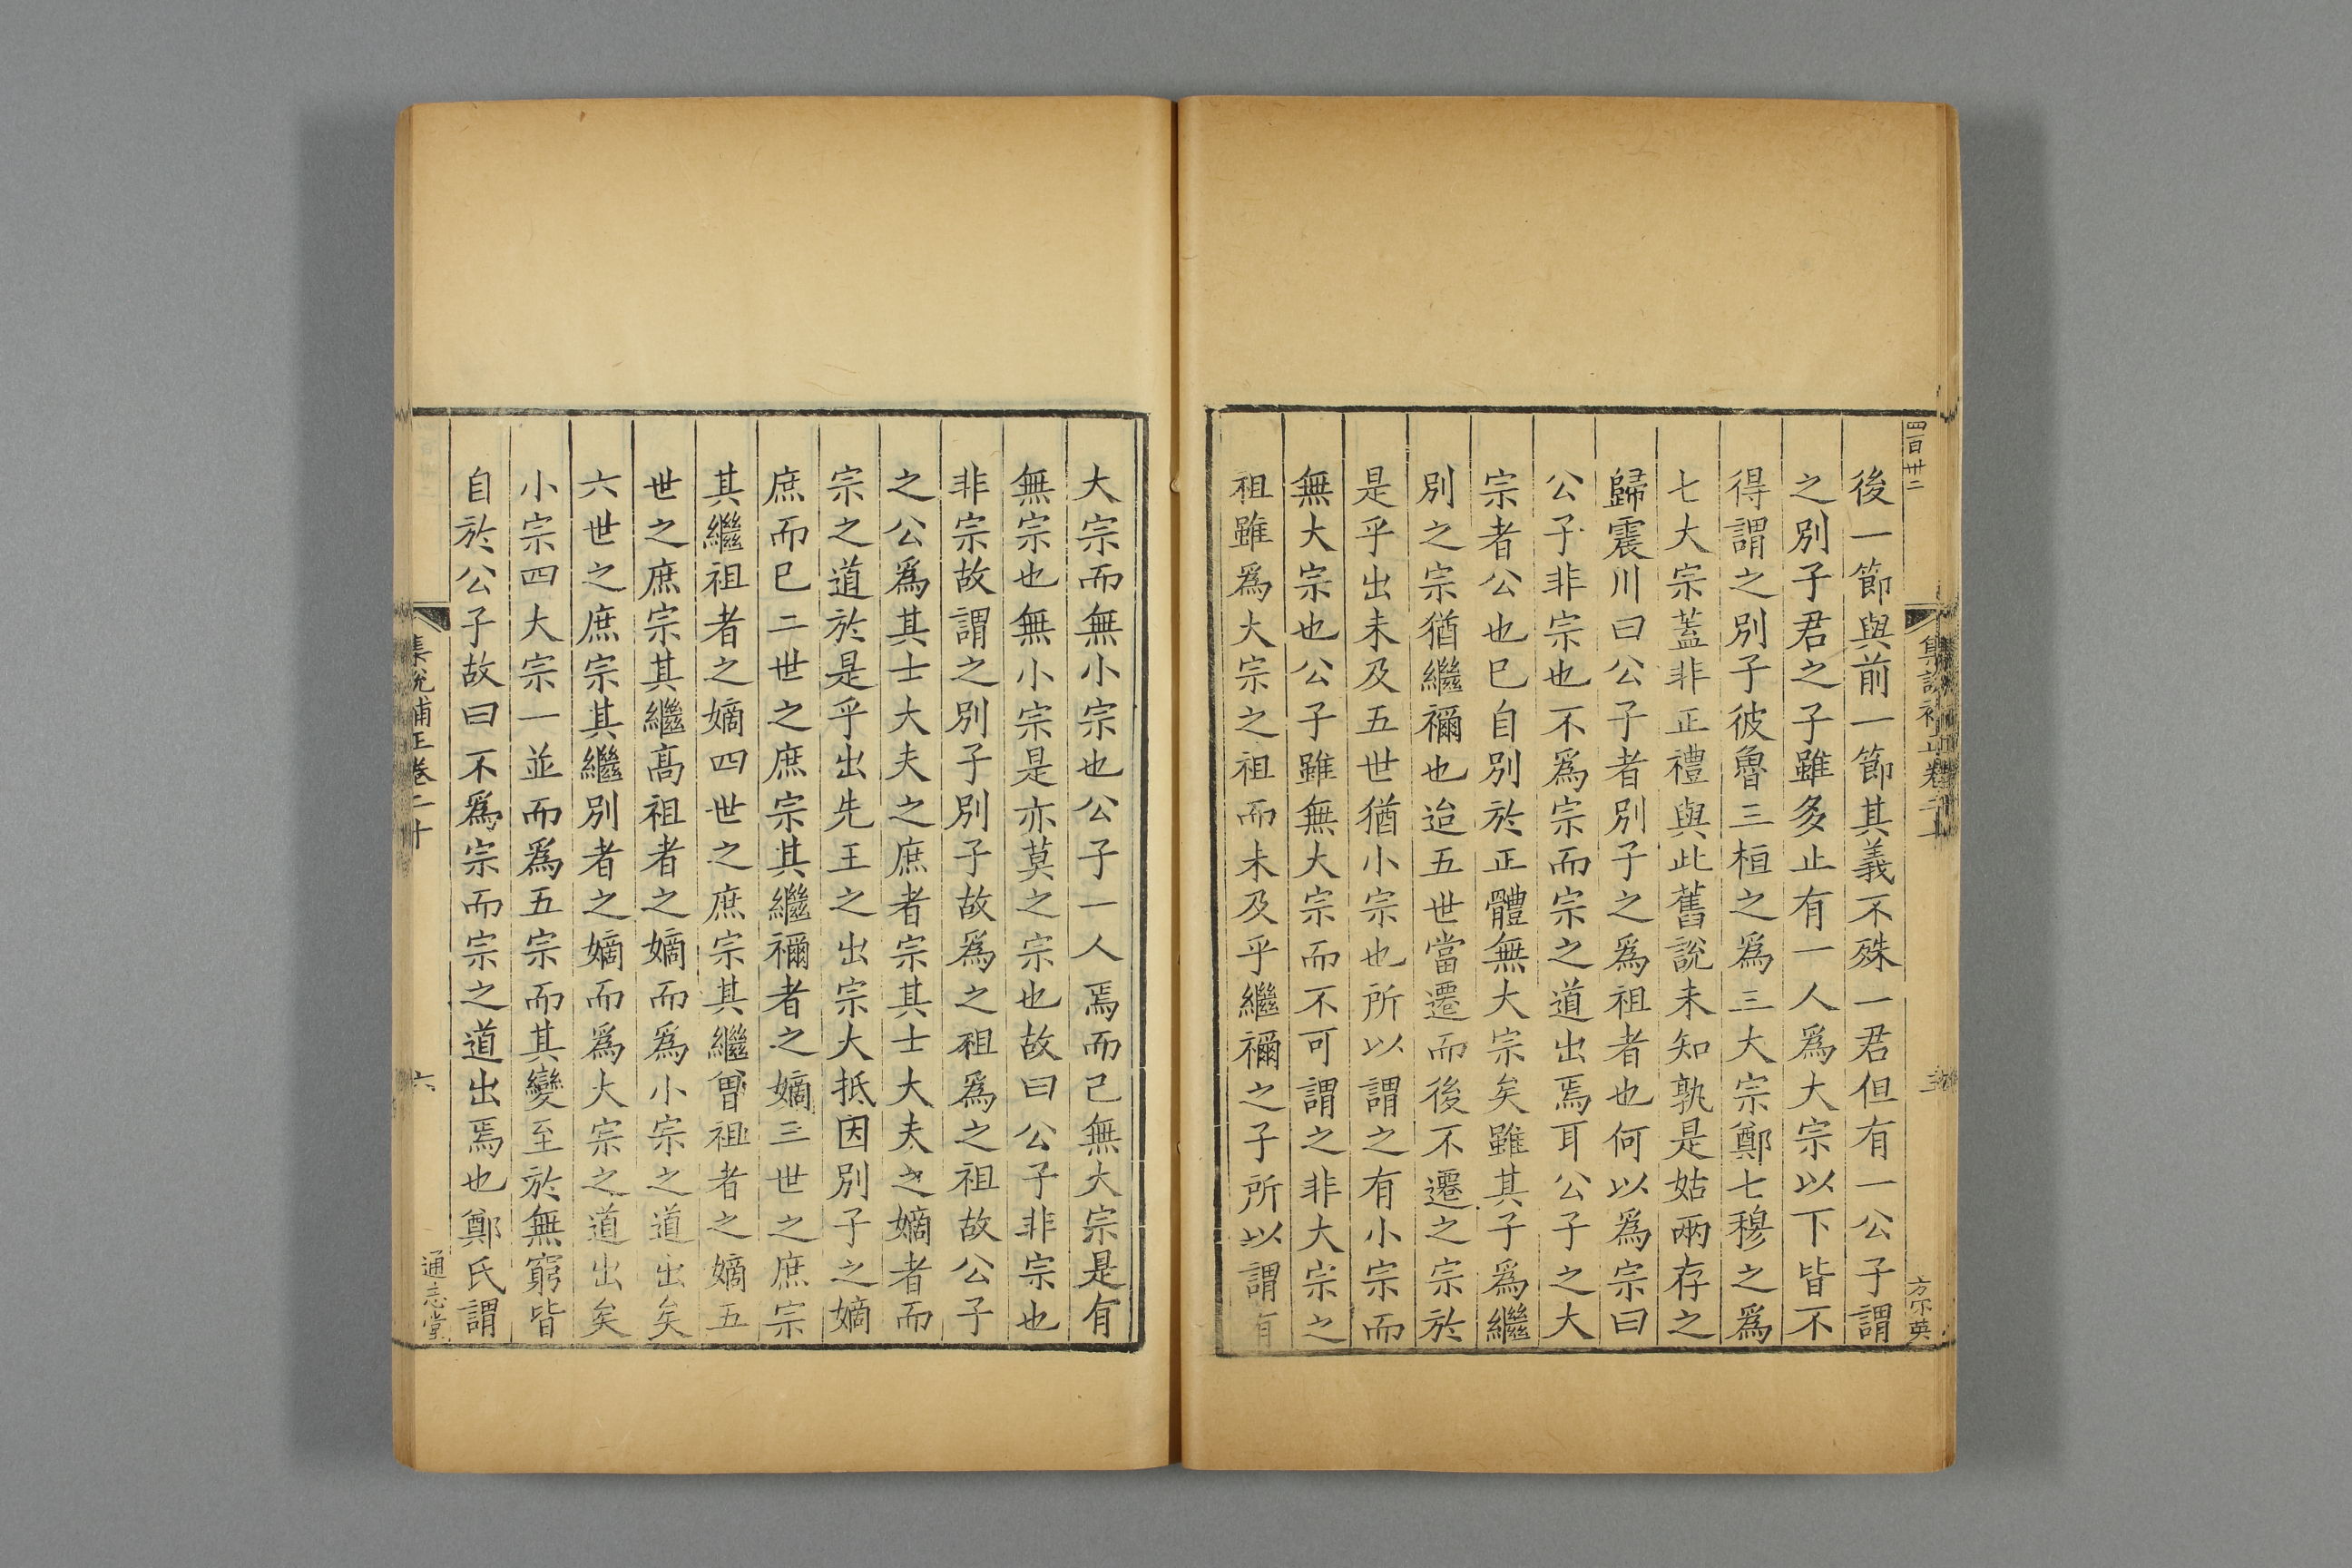 四百卅二
後一節與前一節其義不殊一君但有一公子謂
之別子君之子雖多止有一人爲大宗以下皆不
得謂之別子彼魯三桓之爲三大宗鄭七穆之爲
七大宗蓋非正禮與此舊說未知孰是姑兩存之
歸震川曰公子者別子之爲祖者也何以爲宗曰
公子非宗也不爲宗而宗之道出焉耳公子之大
宗者公也已自別於正體無大宗矣雖其子爲繼
別之宗猶繼禰也迨五世當遷而後不遷之宗於
是乎出未及五世猶小宗也所以謂之有小宗而
無大宗也公子雖無大宗而不可謂之非大宗之
祖雖爲大宗之祖而未及乎繼禰之子所以謂有
大宗而無小宗也公子一人焉而已無大宗是有
無宗也無小宗是亦莫之宗也故曰公子非宗也
非宗故謂之別子別子故爲之祖爲之祖故公子
之公爲其士大夫之庶者宗其士大夫之嫡者而
宗之道於是乎出先王之出宗大抵因別子之嫡
庶而已二世之庶宗其繼禰者之嫡三世之庶宗
其繼祖者之嫡四世之庶宗其繼曾祖者之嫡五
世之庶宗其繼高祖者之嫡而爲小宗之道出矣
六世之庶宗其繼別者之嫡而爲大宗之道出矣
小宗四大宗一並而爲五宗而其變至於無窮皆
自於公子故曰不爲宗而宗之道出焉也鄭氏謂
集說補正卷二十
六
通志堂